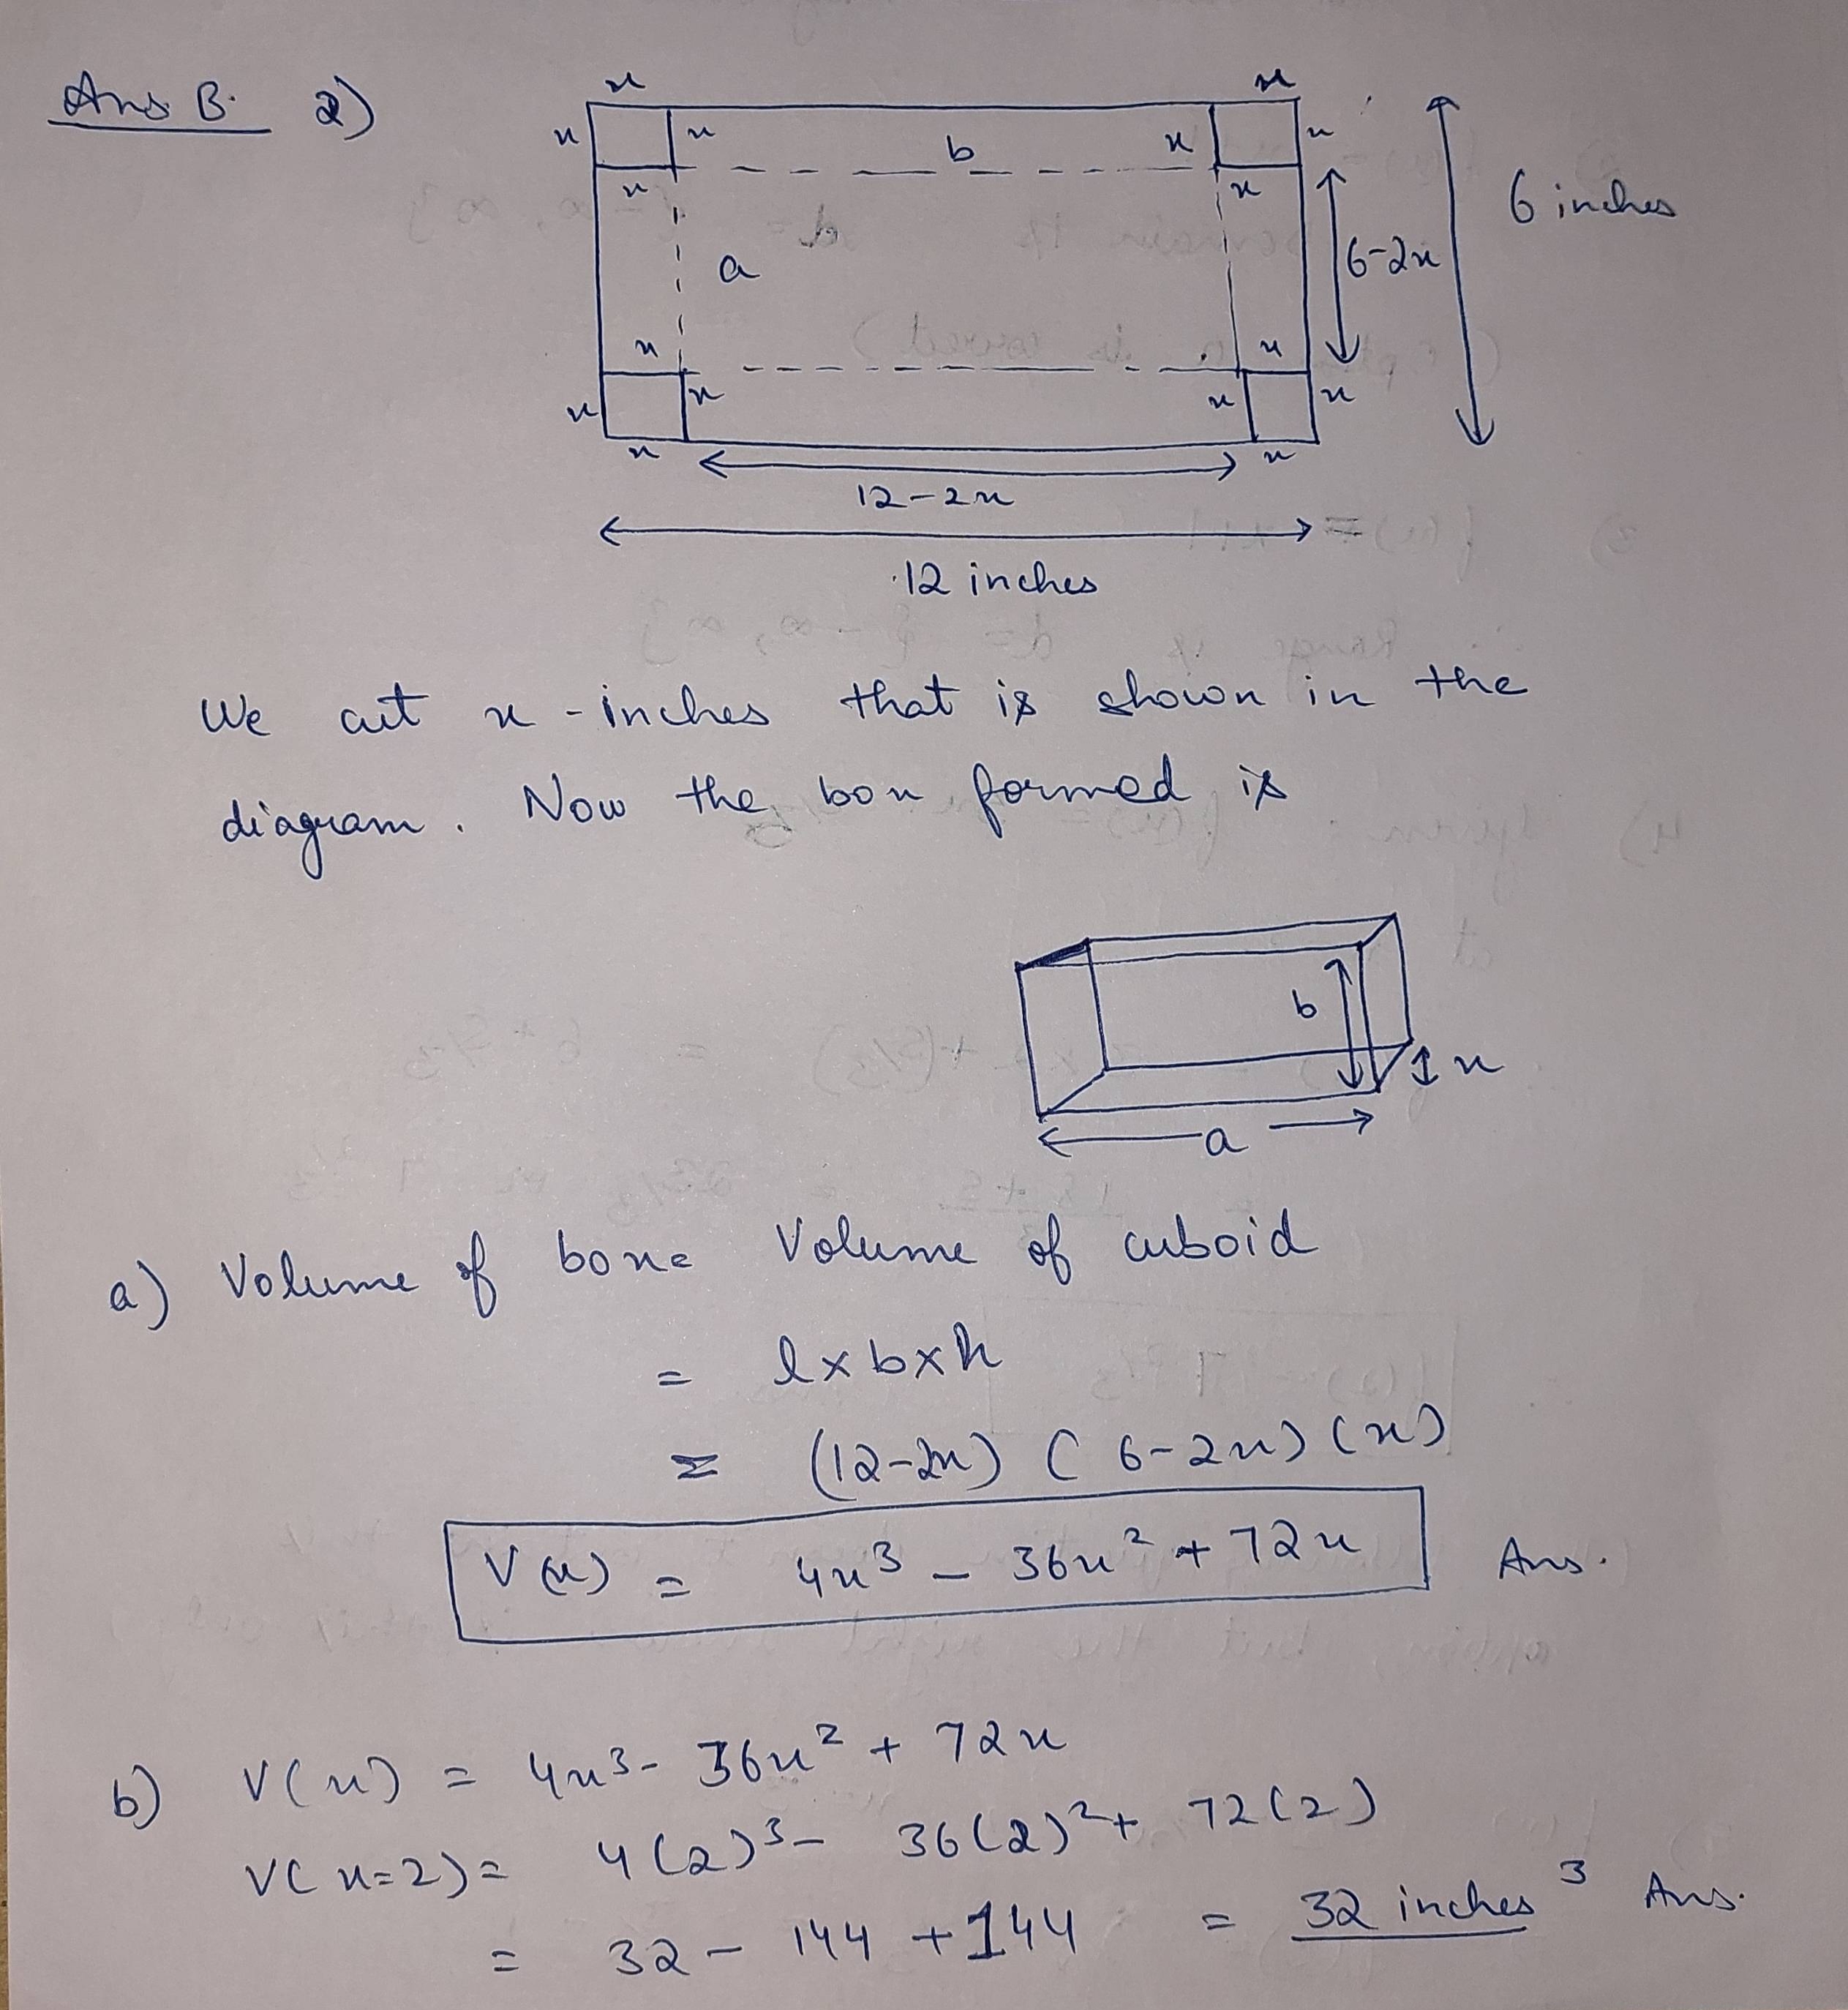 Ans B. 2)
x x
x x b x x
x x
a
6-2x
6 inches
x x
x x x x
x x
12-2x
12 inches
We cut x-inches that is shown in the
diagram. Now the box formed is
b
x
a
a) Volume of box = Volume of cuboid
= l x b x h
= (12-2x) (6-2x) (x)
V(x) = 4x³ - 36x² + 72x Ans.
b) V(x) = 4x³ - 36x² + 72x
V(x=2) = 4(2)³ - 36(2)² + 72(2)
= 32 - 144 + 144 = 32 inches³ Ans.